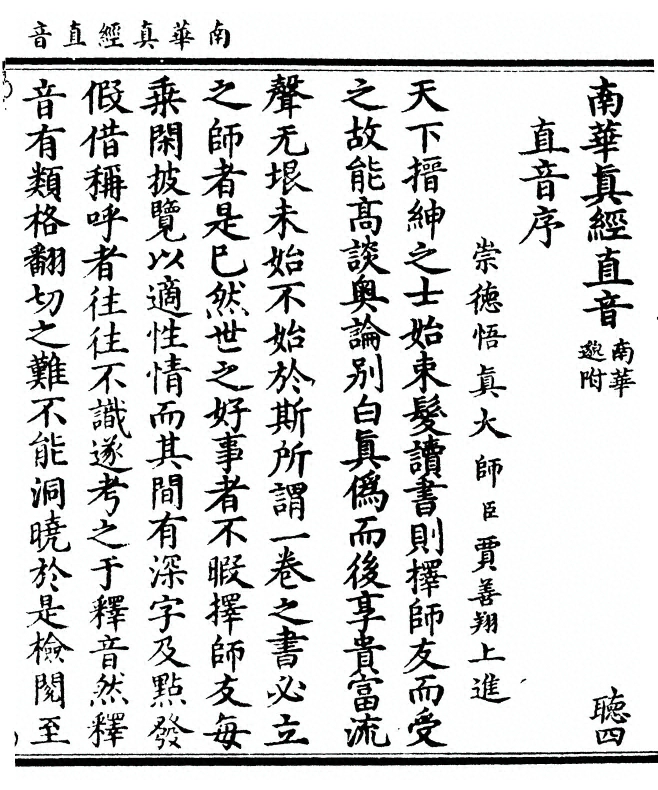 音直經真華南
南華眞經直音 南華邈附 聽四
直音序
崇德悟眞大師臣賈善翔上進
天下搢紳之士始束髮讀書則擇師友而受
之故能高談奥論别白眞僞而後享貴富流
聲无垠未始不始於斯所謂一卷之書必立
之師者是已然世之好事者不暇擇師友每
乗閑披覽以適性情而其間有深字及點發
假借稱呼者往往不識遂考之于釋音然釋
音有類格翻切之難不能洞曉於是檢閱至